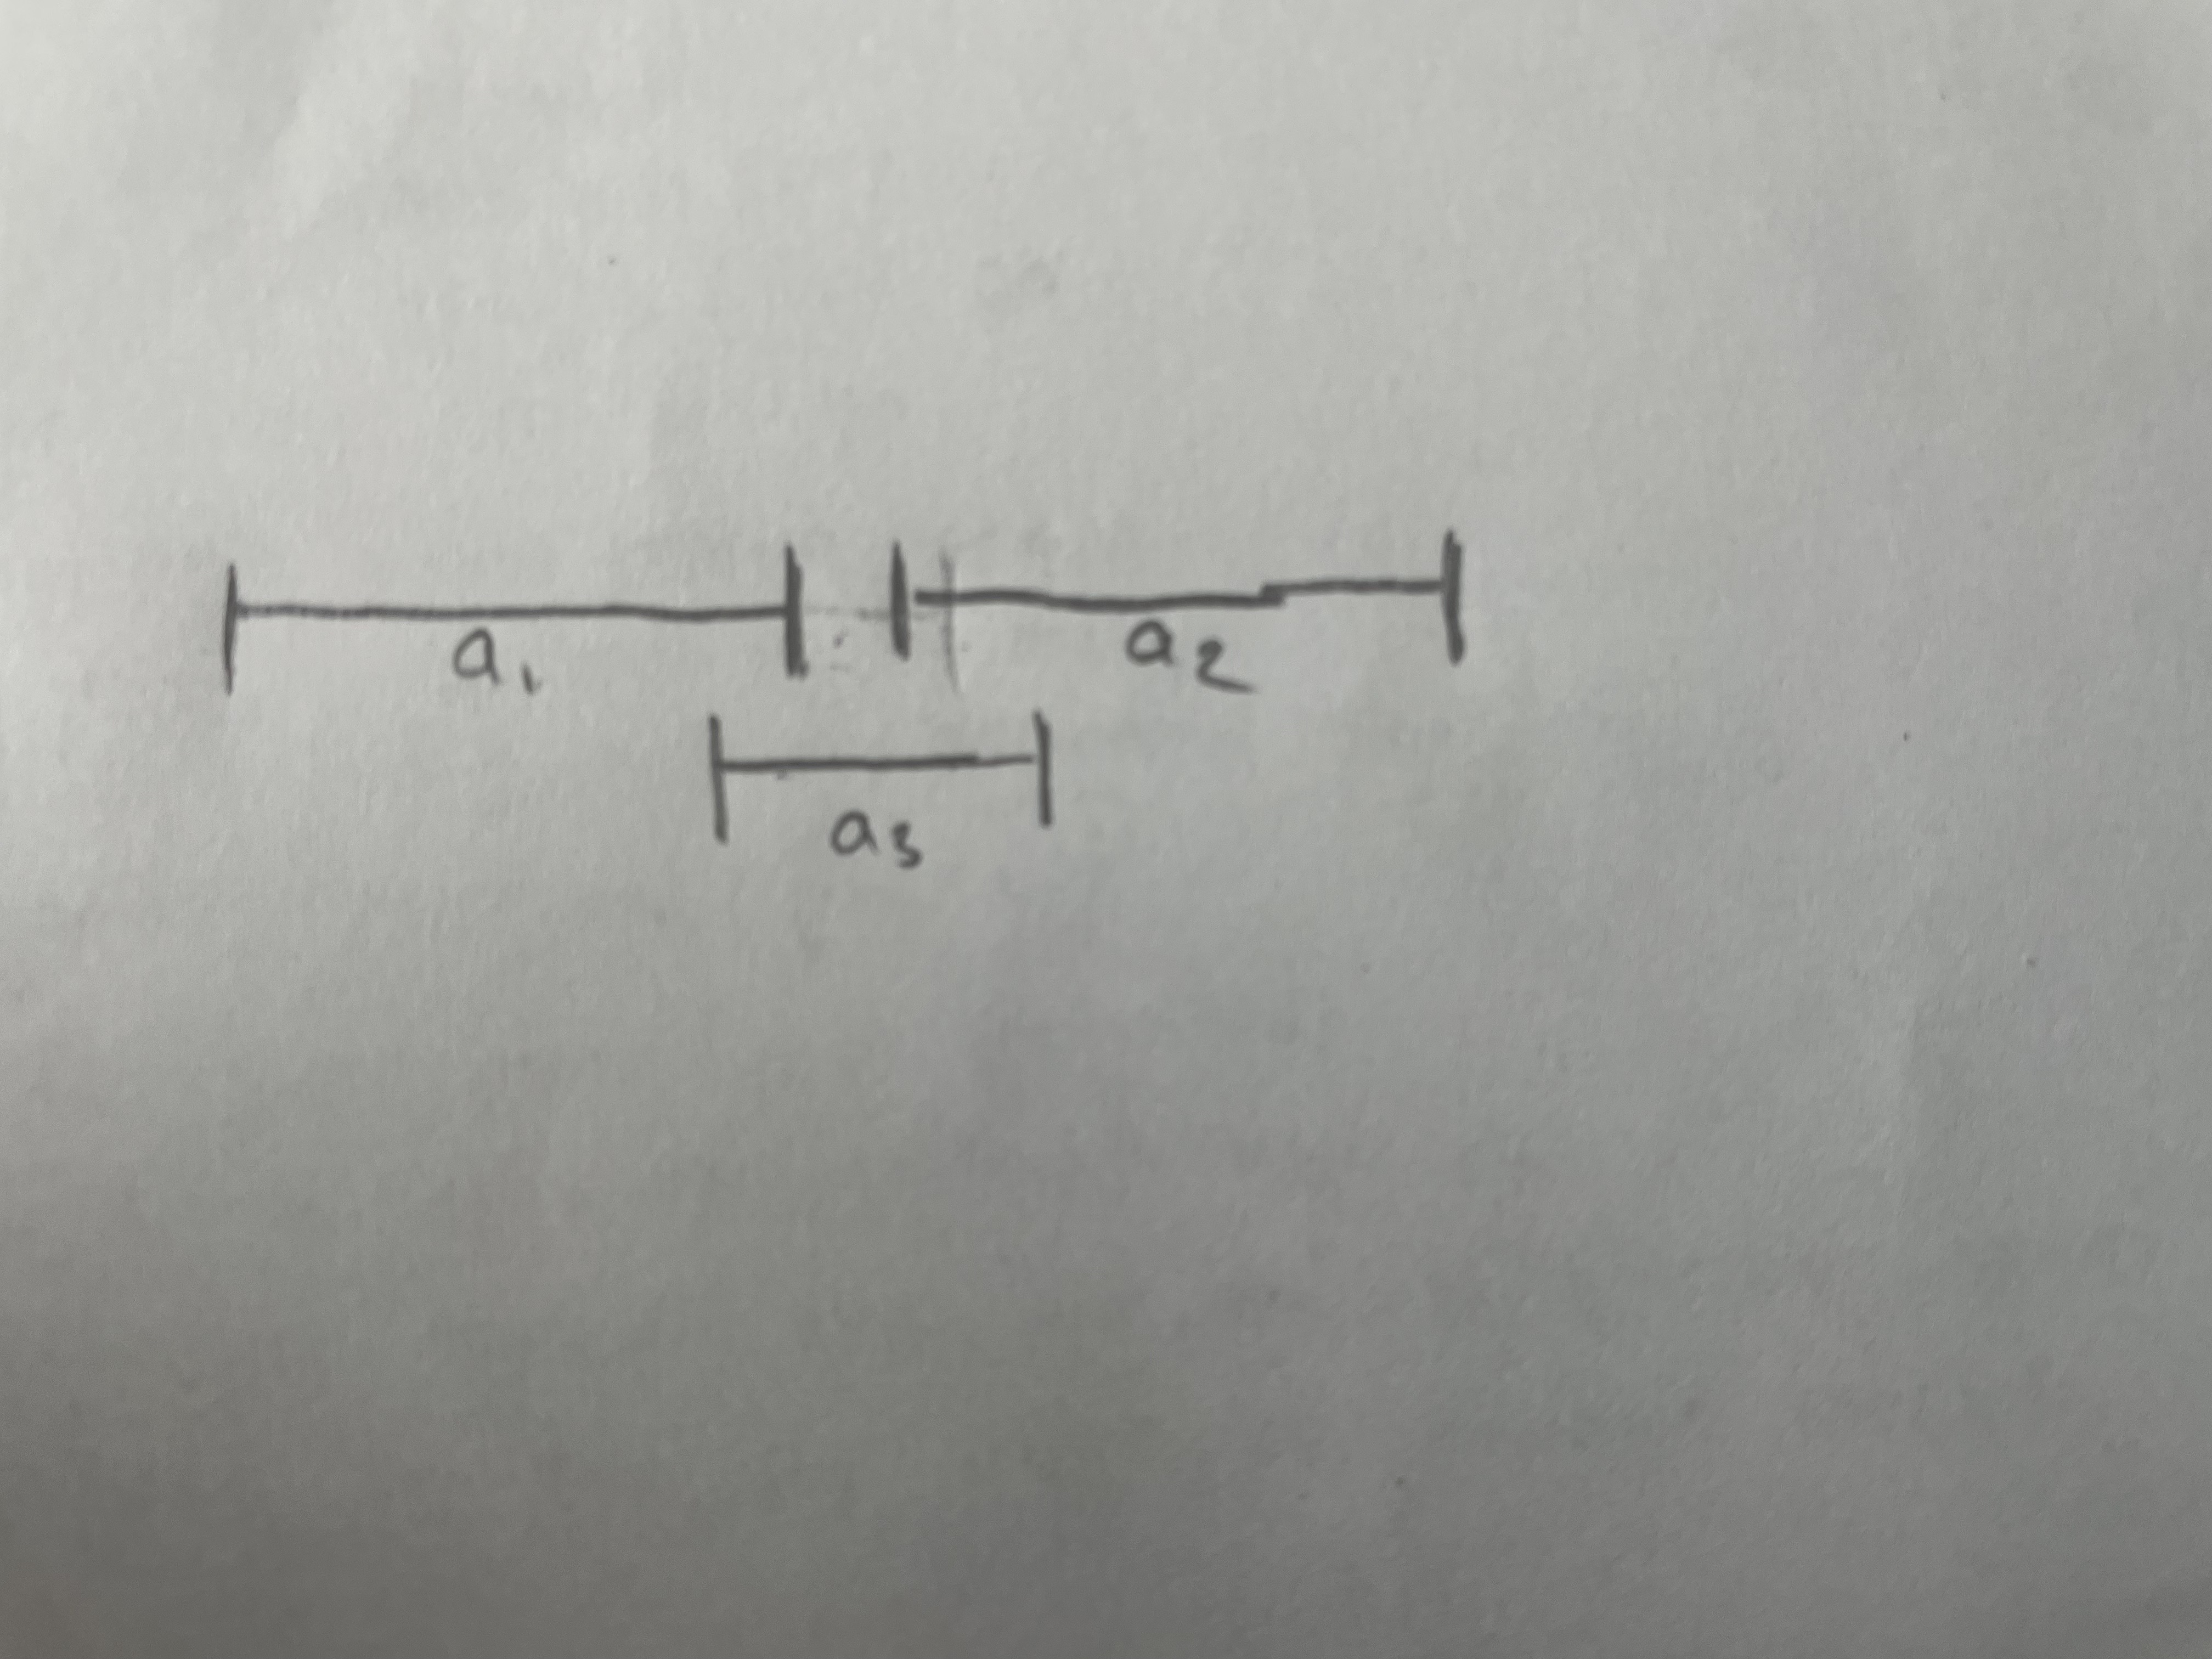 a₁ a₂
a₃